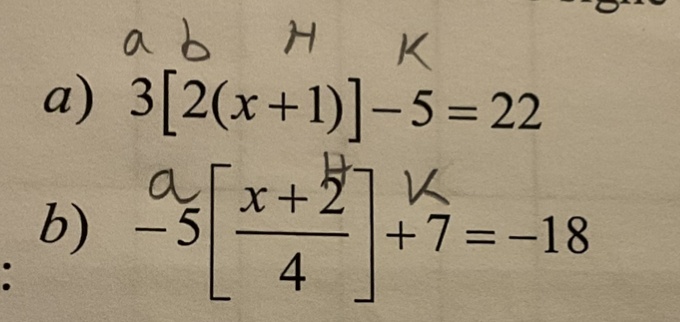 a b H K
a) 3[2(x+1)]-5=22
a H K
b) -5[(x+2)/4]+7=-18
: